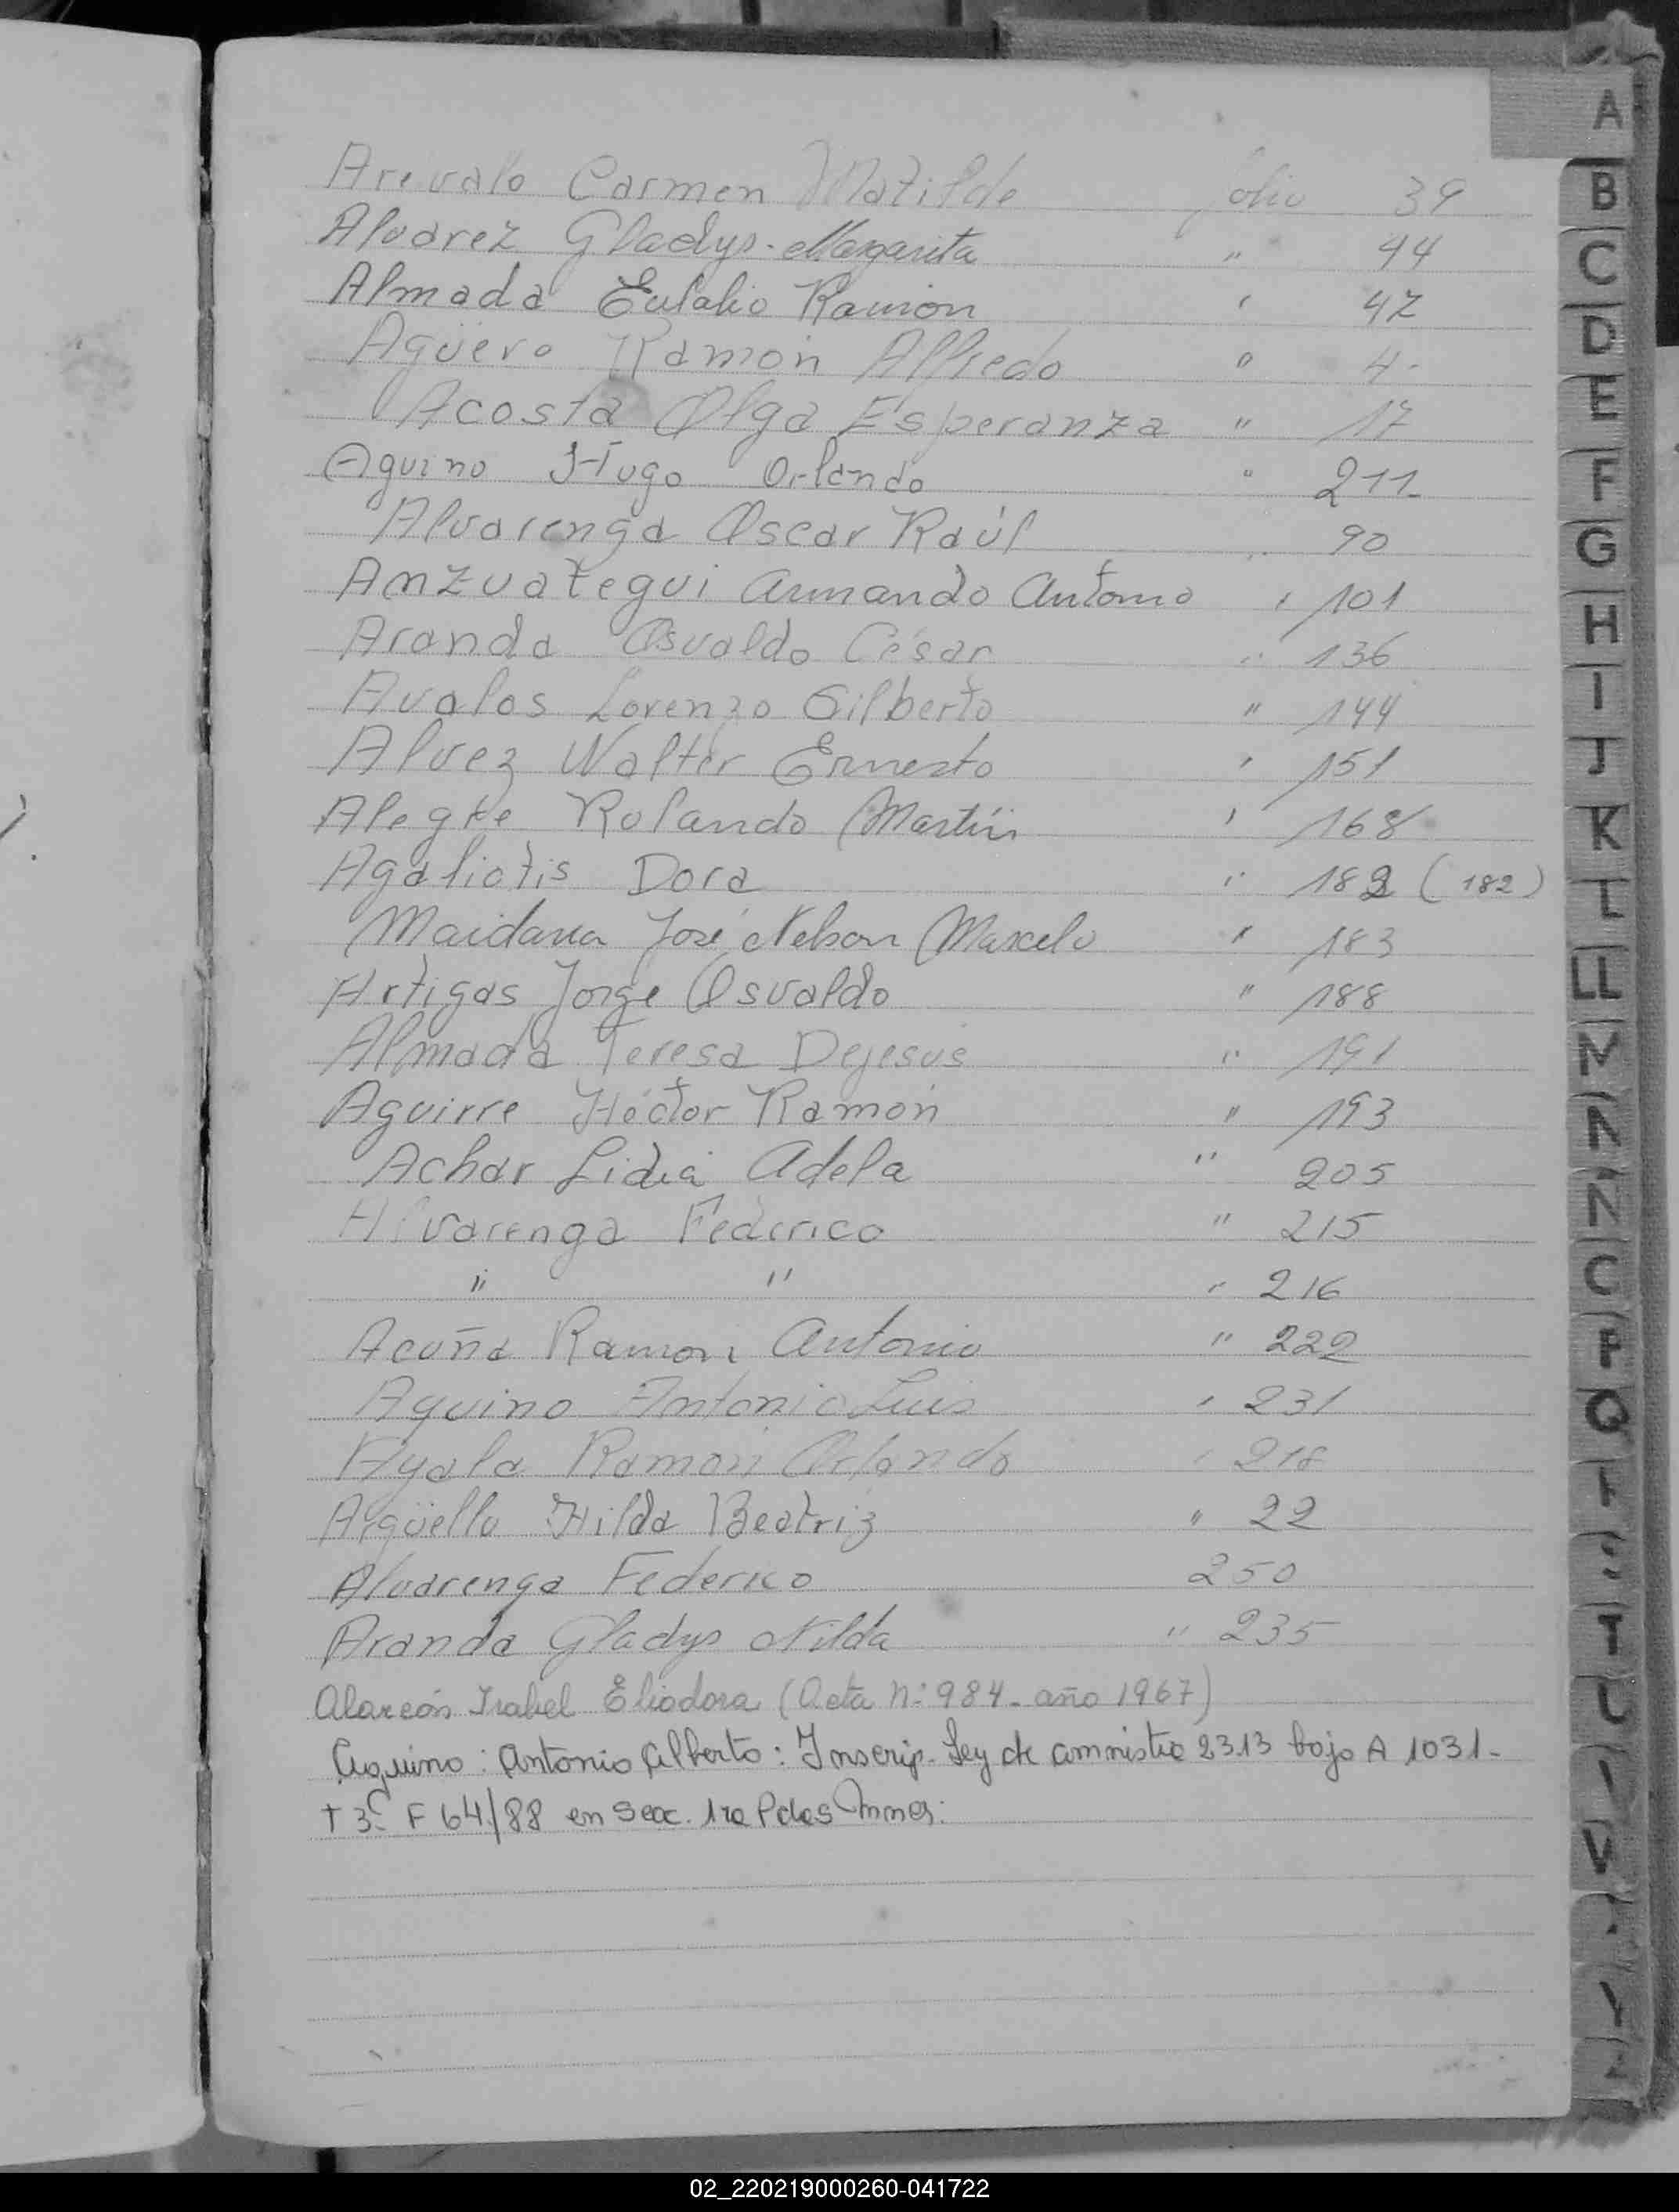 A
Arevalo Carmen Matilde folio 39
Alvarez Gladys Margarita " 44
Almada Eulalio Ramón " 47
Agüero Ramón Alfredo " 4-
Acosta Olga Esperanza " 17
Aquino Hugo Orlando " 211
Alvarenga Oscar Raúl " 90
Anzuategui Armando Antonio " 101
Aranda Osvaldo César " 136
Avalos Lorenzo Gilberto " 144
Alvez Walter Ernesto " 151
Alegre Rolando Martín " 168
Agaliotis Dora " 182 (182)
Maidana José Nelson Marcelo " 183
Artigas Jorge Osvaldo " 188
Almada Teresa Dejesús " 191
Aguirre Héctor Ramón " 193
Achar Lidia Adela " 205
Alvarenga Federico " 215
" " " 216
Acuña Ramón Antonio " 222
Aquino Antonio Luis " 231
Ayala Ramón Orlando " 218
Argüello Hilda Beatriz " 22
Alvarenga Federico 250
Aranda Gladys Nilda " 235
Alarcón Isabel Eliodora (Acta n: 984- año 1967)
Aquino: Antonio Alberto: Inscrip. Ley de amnistia 2313 bajo A 1031-
T 3º F 64/88 en Secc. 1ra Pdas Mnes.
B
C
D
E
F
G
H
I
J
K
L
LL
M
N
Ñ
O
P
Q
T
U
V
Y
Z
02_220219000260-041722